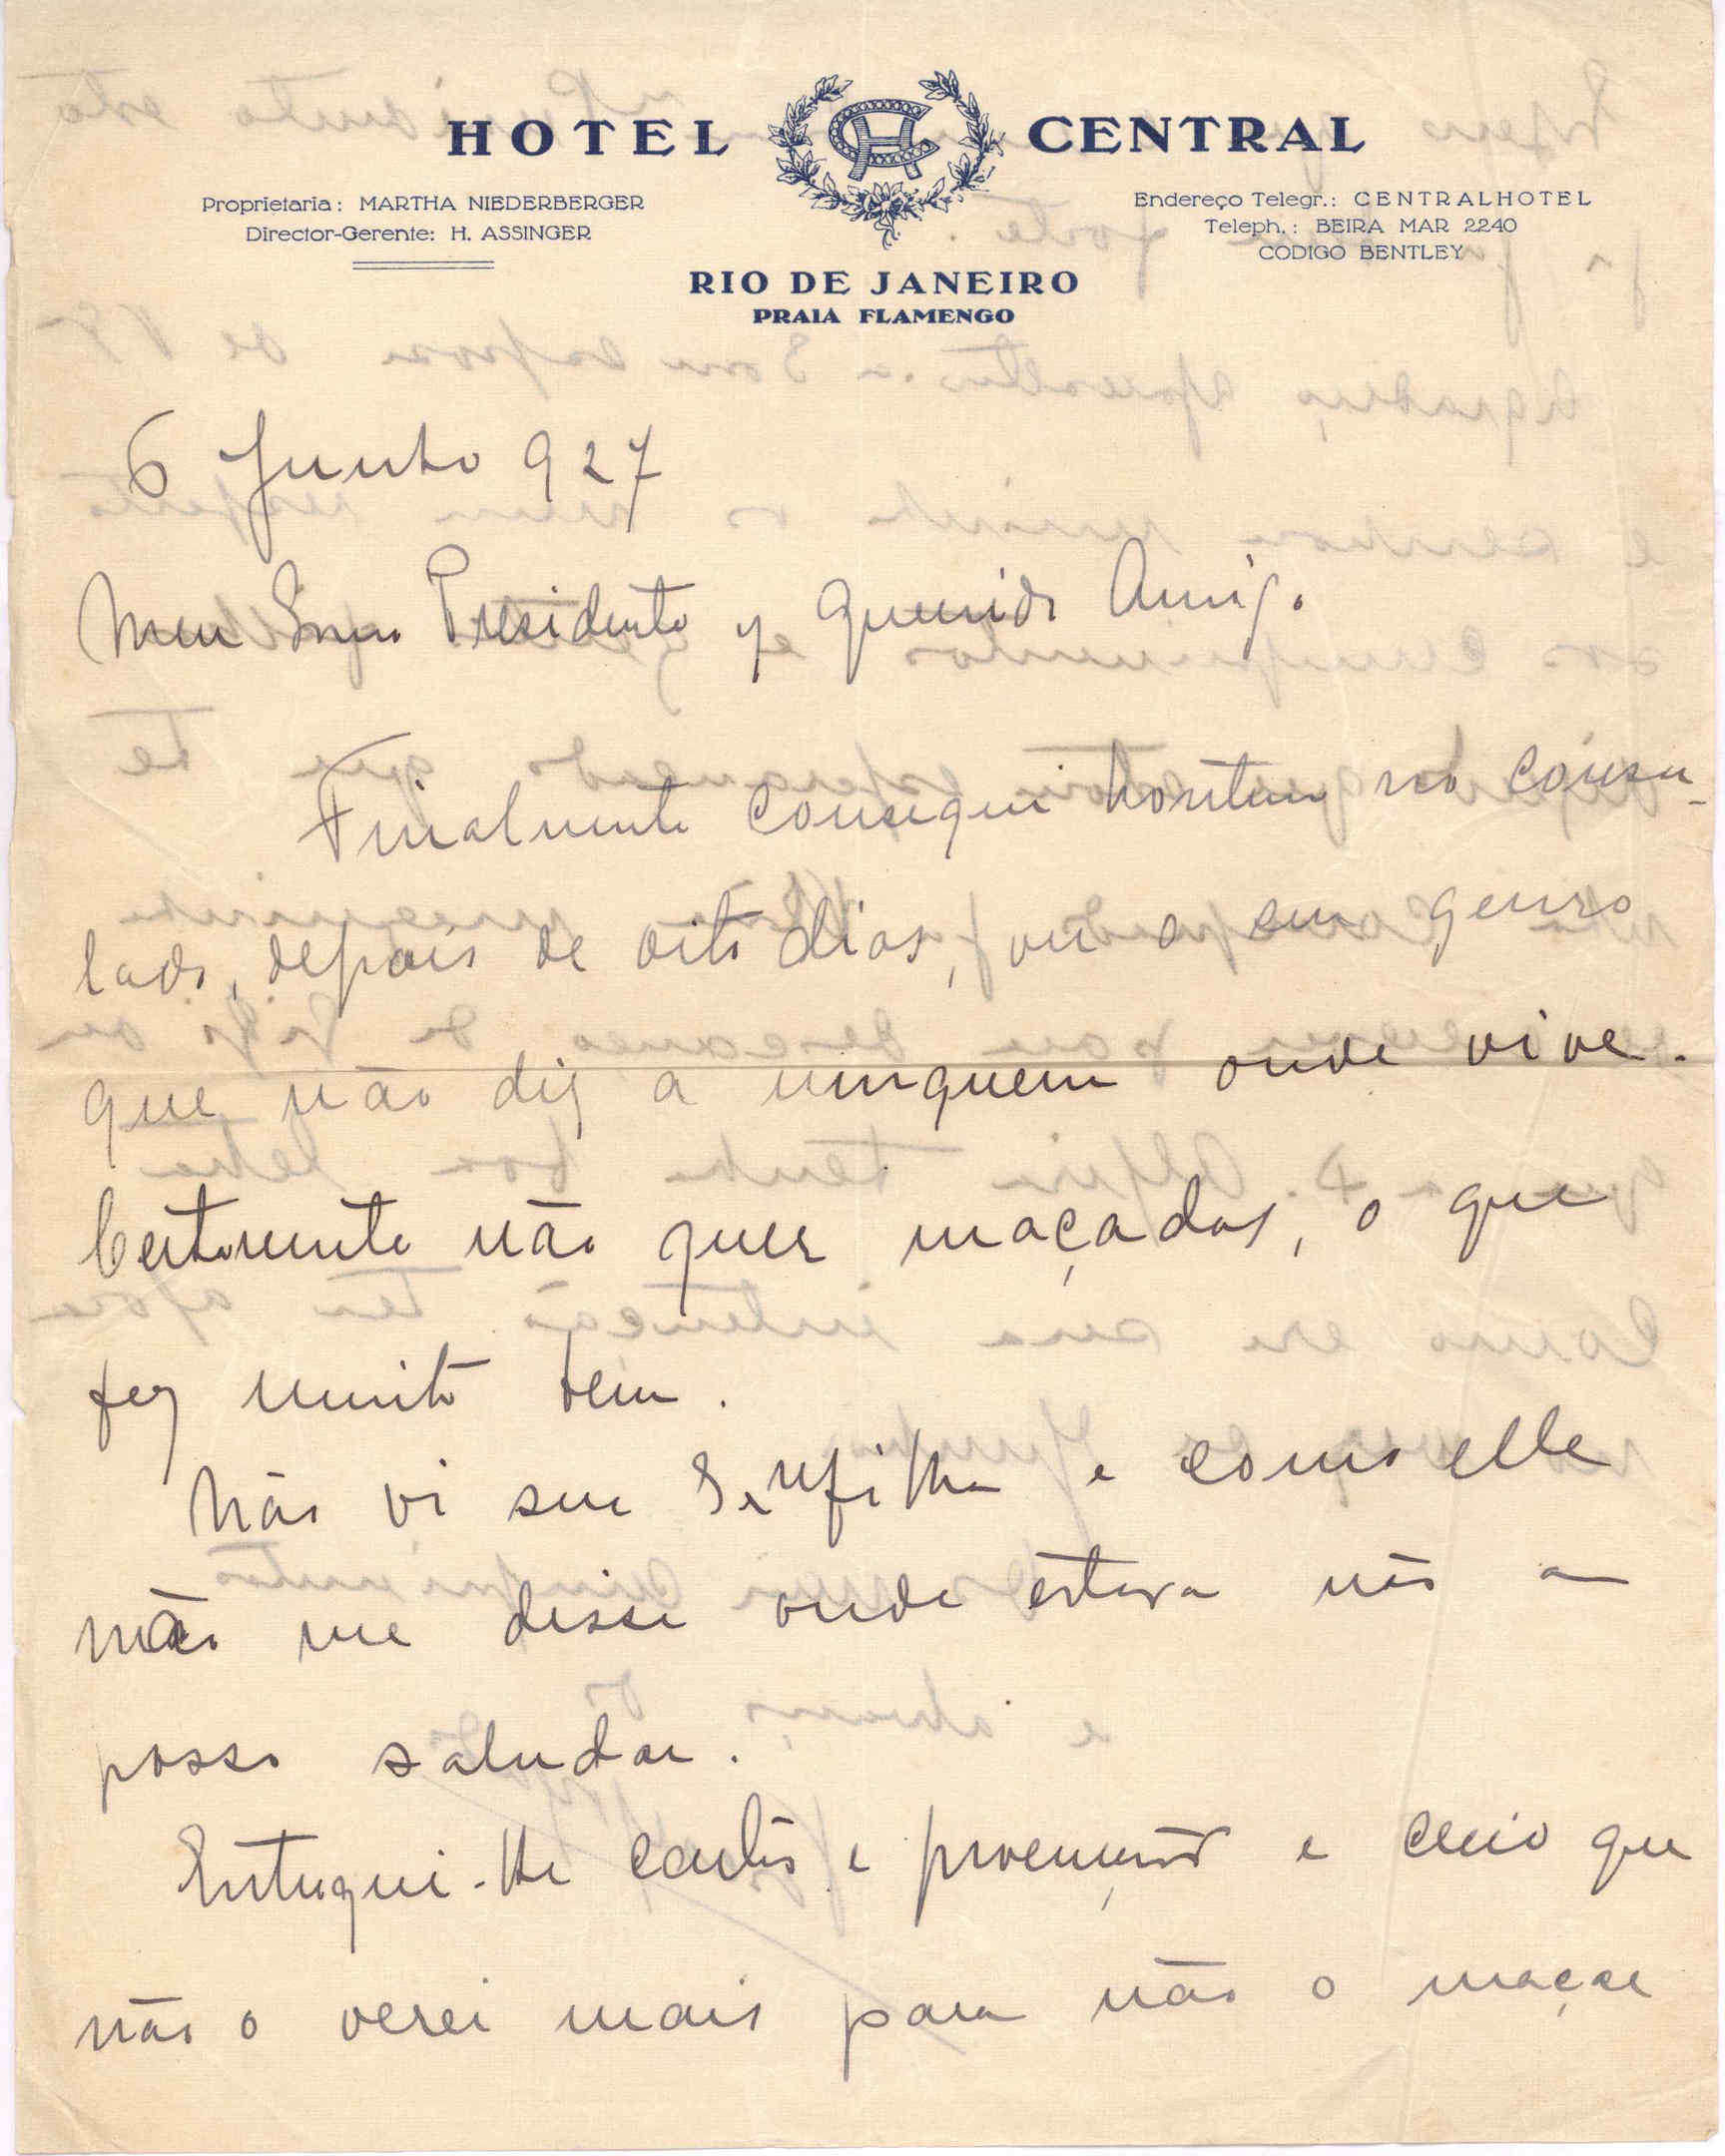 HOTEL CENTRAL
Proprietaria: MARTHA NIEDERBERGER
Director-Gerente: H. ASSINGER
Endereço Telegr.: CENTRALHOTEL
Teleph.: BEIRA MAR 2240
CODIGO BENTLEY
RIO DE JANEIRO
PRAIA FLAMENGO
6 Junho 927
Meu Presidente y querido Amigo
Finalmente consegui hontem no consu-
lado, depois de oito dias, ver o seu genro
que não diz a ninguem onde vive.
Certamente não quer maçadas, o que
fez muito bem.
Não vi sua filha e como elle
não me disse onde estava não a
posso saludar.
Entreguei-lhe cartas e procuração e creio que
não o verei mais para não o maçar